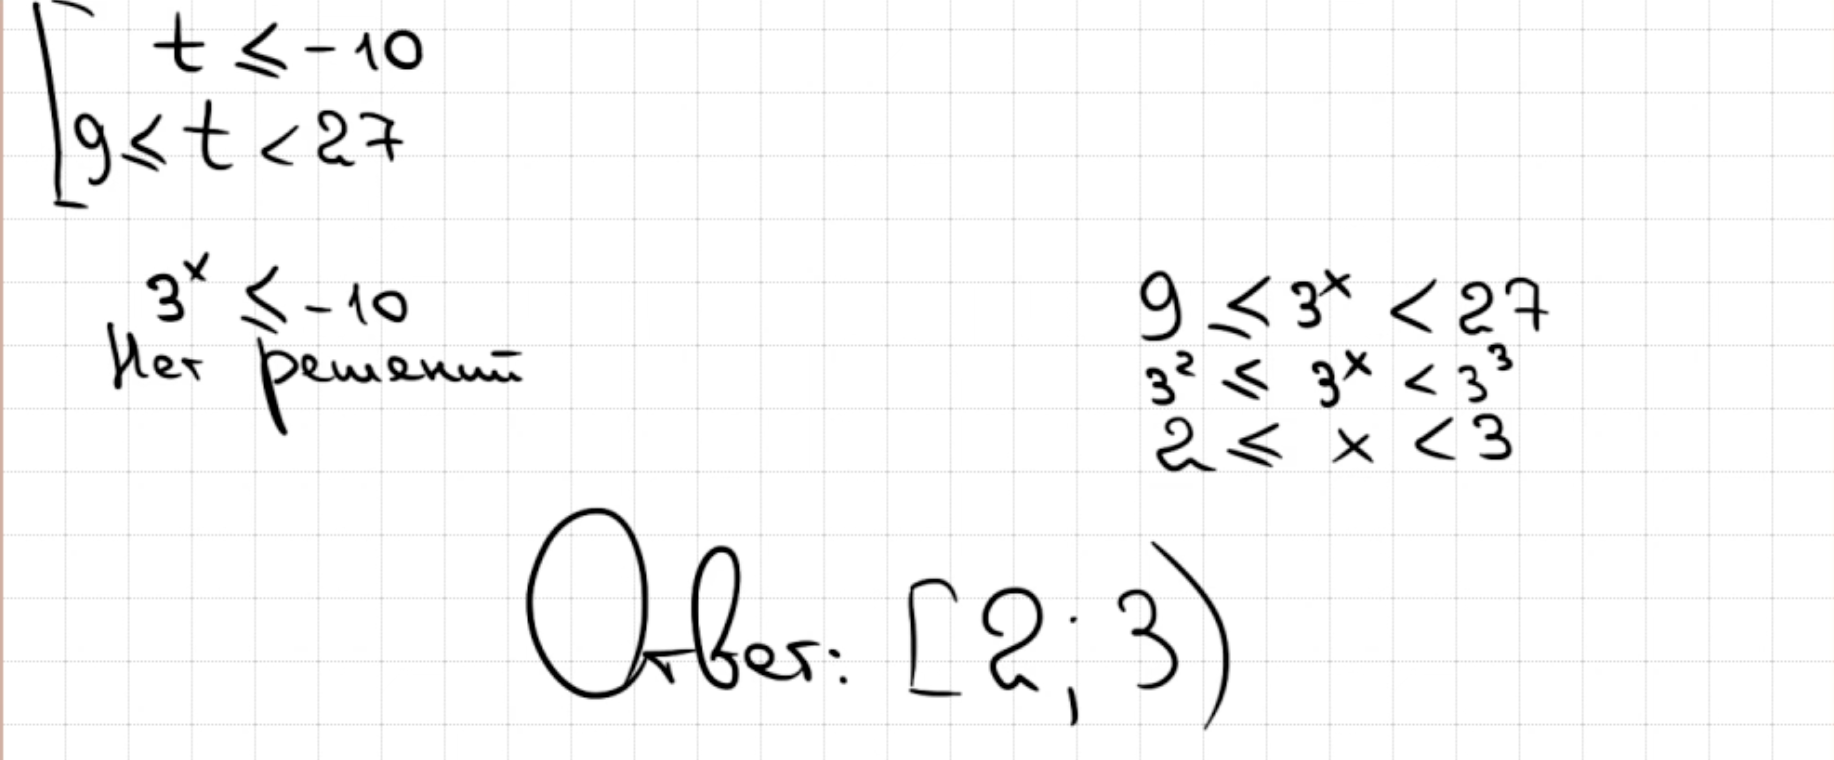 t ⩽ -10
9 ⩽ t < 27
3ˣ ⩽ -10
Нет решений
9 ⩽ 3ˣ < 27
3² ⩽ 3ˣ < 3³
2 ⩽ x < 3
Ответ: [2; 3)